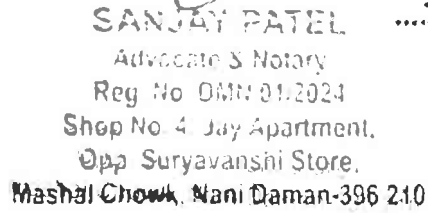 SANJAY PATEL
Advocate & Notary
Reg No DMN 01/2024
Shop No 4 Jay Apartment,
Opp Suryavanshi Store,
Mashal Chowk, Nani Daman-396 210